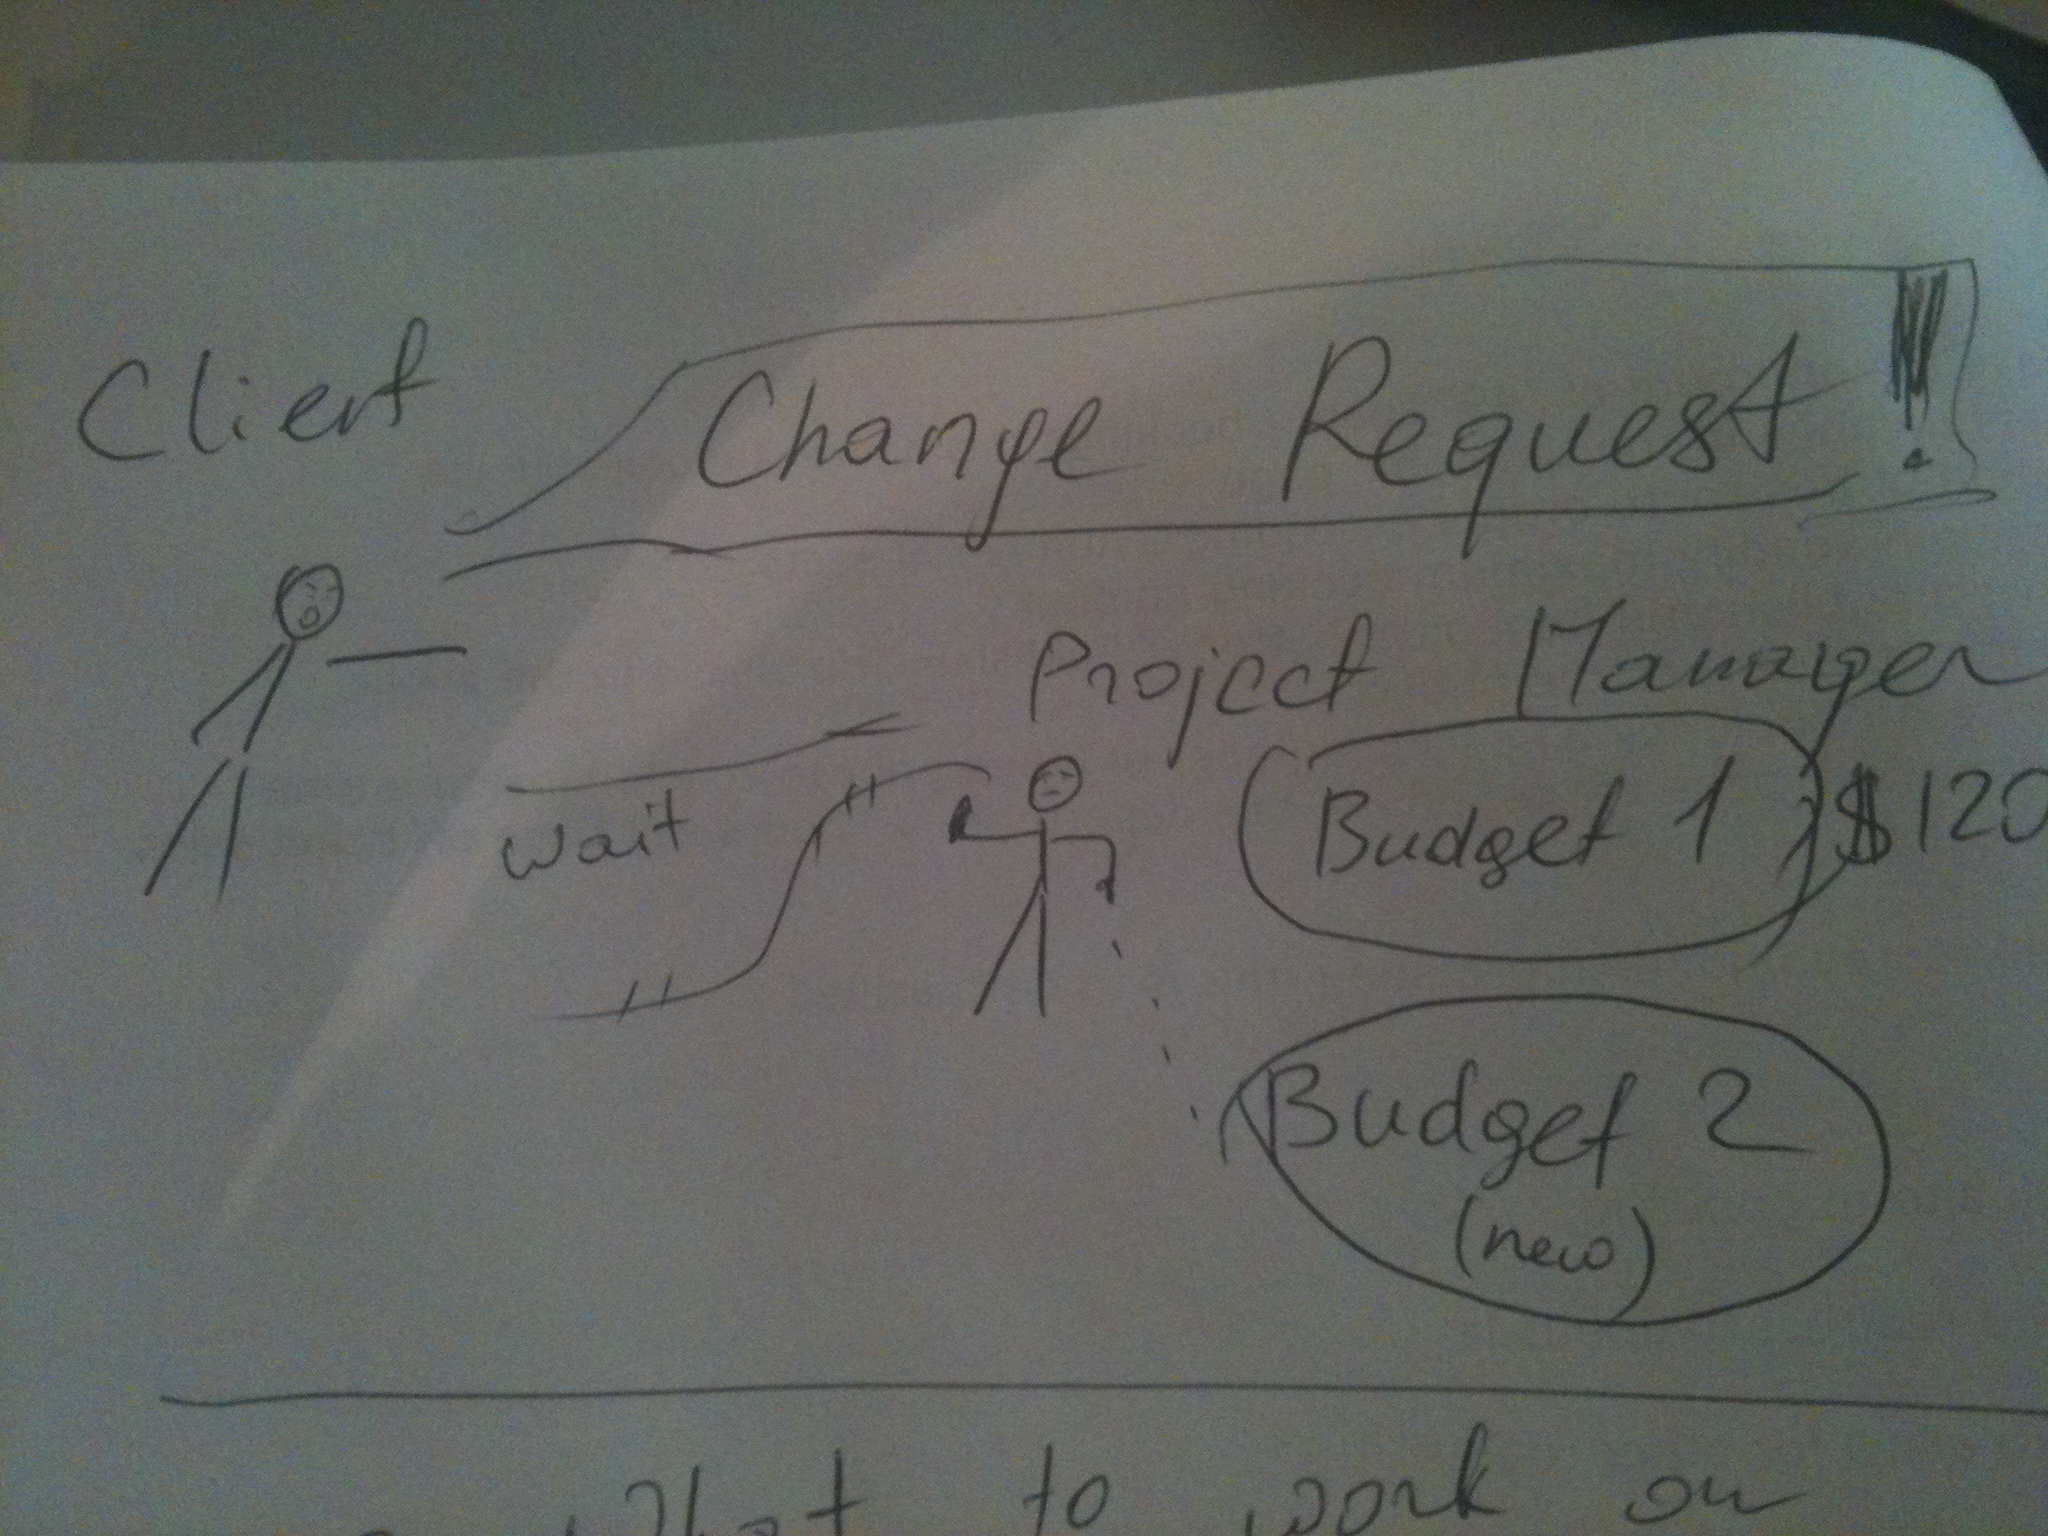 Client
Change Request!
Project Manager
wait
Budget 1 $120
Budget 2
(new)
What to work on